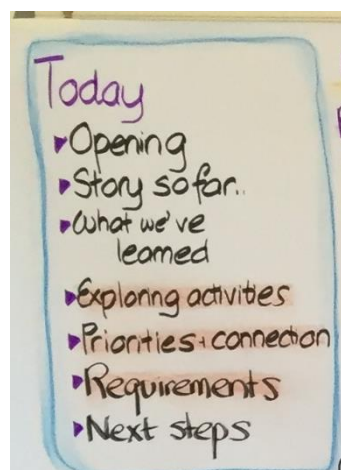 Today
▸Opening
▸Story so far..
▸What we've
learned
▸Exploring activities
▸Priorities + connection
▸Requirements
▸Next steps